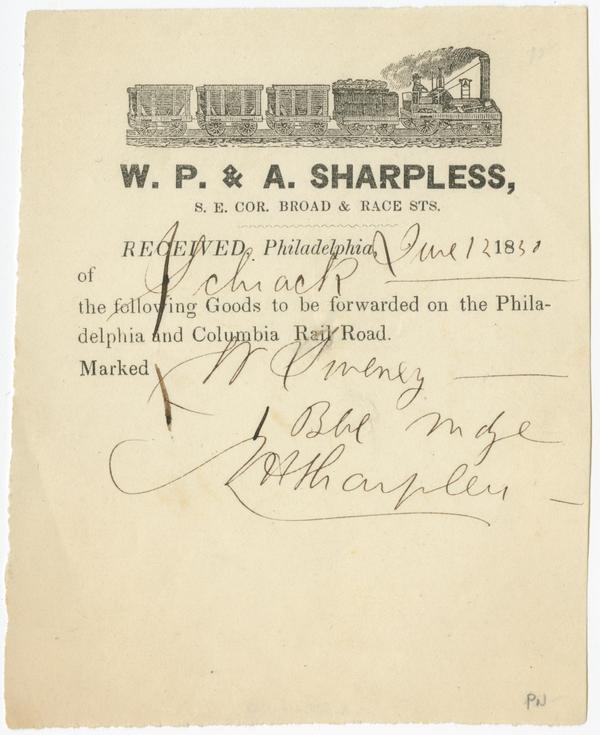 W. P. & A. SHARPLESS,
S. E. COR. BROAD & RACE STS.
RECEIVED, Philadelphia, June 12 1850
of J Schrack
the following Goods to be forwarded on the Phila-
delphia and Columbia Rail Road.
Marked W Sweney
1 Bbl mdze
Sharpless
PN